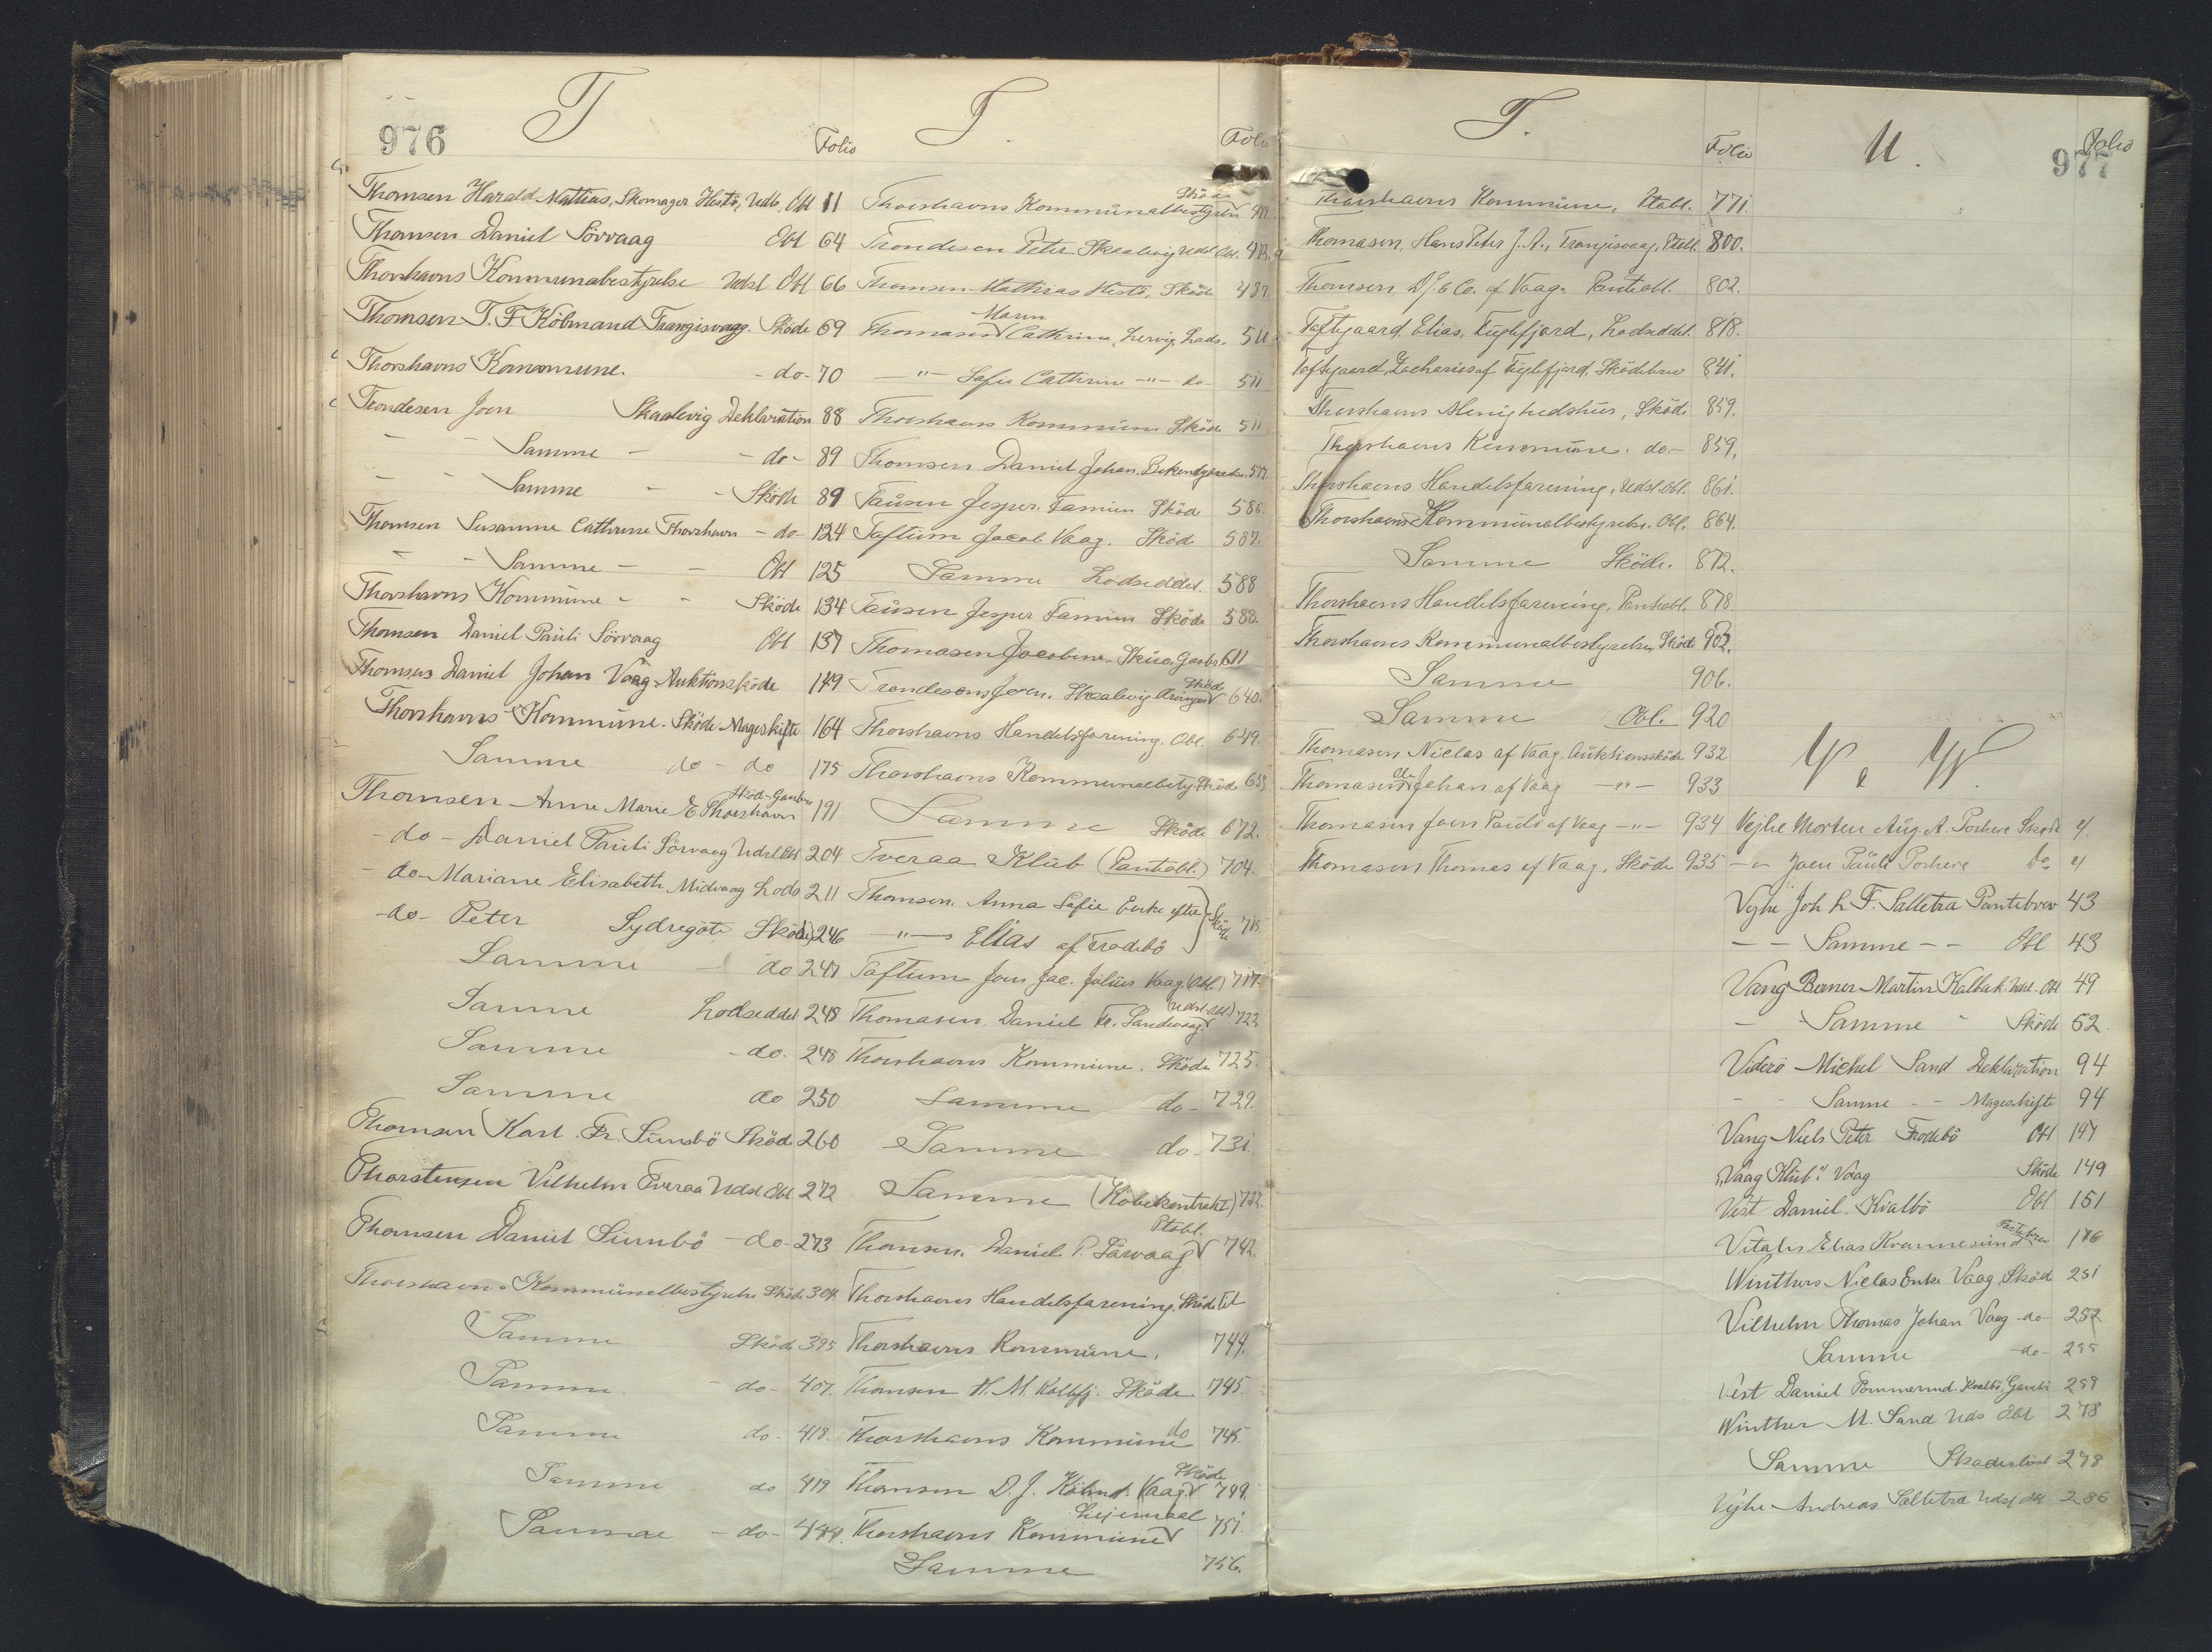 976
T
Folio
Thomsen Harald Mattias, Skomager Hestö, Udb. Obl 11
Thomsen Daniel Sörvaag Obl 64
Thorshavns Kommunabestyrelse Udsl Obl 66
Thomsen T. F Köbmand Trangisvaag. Sköde 69
Thorshavns Kommune. -do- 70
Trondesen Joen Skaalevig Deklaration 88
- - Samme - -do- 89
- - Samme - - Sköde 89
Thomsen Susanne Cathrine Thorshavn -do- 124
- - Samme - - Obl 125
Thorshavns Kommune - - Sköde 134
Thomsen Daniel Pauli Sörvaag Obl 137
Thomsens Daniel Johan Vaag Auktionsköde 149
Thorshavns Kommune. Sköde Mageskifte 164
Samme do - do 175
Thomsen Anne Marie E Thorshavn Sköd-Gavebr 191
-do- Daniel Pauli Sörvaag Udsl Obl 204
-do- Mariane Elisabeth Midvaag Lods 211
-do- Peter Sydregöte Sköde 246
Samme - do 247
Samme Lodseddel 248
Samme -do- 248
Samme do 250
Thomsen Karl. Fr. Sumbö Sköde 260
Thorstensen Vilhelm Tveraa Udsl Obl 272
Thomsen Daniel Sumbö -do- 273
Thorshavns Kommunalbestyrelse Sköde 304
Samme Sköde 395
Samme - do- 407.
Samme do- 418.
Samme do 419
Samme -do- 444.
T.
Folio
Thorshavns Kommunalbestyrelse Sköde
Trondesen Peter Skaalevig Udsl Obl.
Thomsen Mathias Hestö, Sköde 487.
Thomasen Mann Cathrine, Lervig, Lods. 511
-"- Sofie Cathrine -"- do- 511
Thorshavns Kommune Sköde 511
Thomsen Daniel Johan. Bekendgörelse. 577.
Tausen Jesper. Famien Sköde 586.
Taftum Jacob Vaag. Sköd 587.
Samme Lodseddel. 588
Tausen Jesper Famien Sköde 588.
Thomasen Jacobine. Skuö. Gavbr. 611
Trondesens Joen. Skaalevig Arvinger Sköde 640.
Thorshavns Handelsforening. Obl. 649.
Thorshavns Kommunalbesty. Sköde 655
Samme Sköde 672.
Tveraa Klub (Pantobl.) 704.
Thomsen, Anna Sofie Enke efter
-"- Elias af Frodebö Sköde 715
Taftum Jens Jac. Julius Vaag (Obl.) 717.
Thomasen, Daniel Fr. Sandevaag (Udsl. Obl.) 722
Thorshavns Kommune. Sköde 725.
Samme do- 729.
Samme do- 731.
Samme (Köbekontrakt) 732.
Thomsen, Daniel P. Sörvaag Ptobl. 742.
Thorshavns Handelsforening. Sköde Tel
Thorshavns Kommune. 744.
Thomsen H. M. Kolbfj. Sköde 745.
Thorshavns Kommune do 745.
Thomsen D. J. Köbmd. Vaag. Sköde 749.
Thorshavns Kommune Lejemaal 751.
Samme 756.
T.
Folio
Thorshavns Kommune, Ptobl. 771.
Thomasen, Hans Peter J. A., Trangisvaag, Ptobl. 800.
Thomsen, D. J. & Co. af Vaag. Pantobl. 802.
Toftgaard, Elias, Fuglefjord, Lodseddel. 818.
Toftgaard, Zacharias af Fuglefjord, Sködebrev 841.
Thorshavns Menighedshus, Sköde 859.
Thorshavns Kommune. do- 859.
Thorshavns Handelsforening, Udsl. Obl. 861.
Thorshavns Kommunalbestyrelse. Obl. 864.
Samme Sköde. 872.
Thorshavns Handelsforening, Pantobl. 878.
Thorshavns Kommunalbestyrelse, Sköde 902.
Samme 906.
Samme Obl. 920
Thomasen Niclas af Vaag. Auktionssköde 932
Thomasen Johan af Vaag -"- 933
Thomasen Joen Pauli af Vaag -"- 934
Thomasen Thomas af Vaag, Sköde 935
U.
Folio
977
V & W
Vejhe Morten Aug. A. Porkere Sköde 4.
-"- Joen Pauli Porkere Do 4
Vejhe Joh L F. Salletra Pantebrev 43
- - Samme - - Obl 43
Vang Berner Martin Kalbak. Udsl. Obl 49
- Samme - Sköde 52.
Viderö Michel Sand Deklaration 94
- - Samme - - Mageskifte 94
Vang Niels Peter Frodebö Obl 147
"Vaag Klub". Vaag Sköde 149
Vest Daniel. Kvalbö Obl 151
Vitalis Elias Kvannesund Pantebrev 176
Winthers Niclas Enke Vaag, Sköde 251
Vilhelm Thomas Johan Vaag -do- 252
Samme -do- 255
Vest Daniel Pommerud. Kvalbö, Gaveb. 259
Winther M. Sand Uds Obl 278
Samme Skadeslöst 278
Vejhe Andreas Salletra Udsl Obl 286